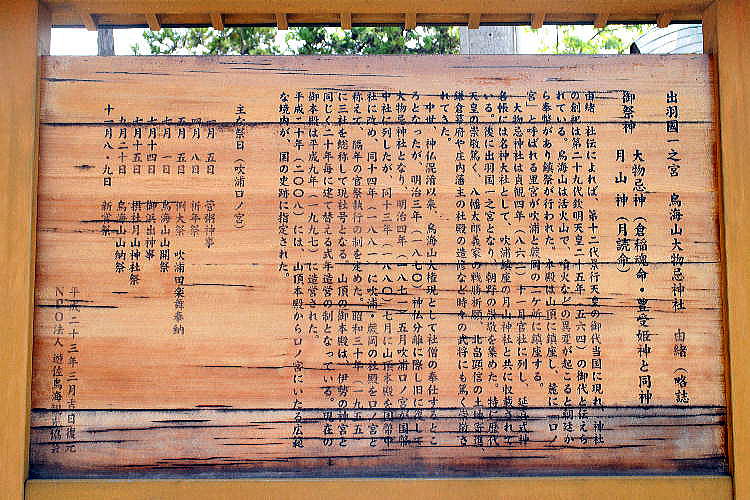 出羽國一之宮　鳥海山大物忌神社　由緒（略誌）
御祭神　大物忌神（倉稲魂命・豊受姫神と同神）
月山神（月読命）
由緒　社伝によれば、第十二代景行天皇の御代当国に現れ、神社
の創祀は第二十九代欽明天皇二十五年（五六四）の御代と伝えら
れている。鳥海山は活火山で、噴火などの異変が起こると朝廷か
ら奉幣があり鎮祭が行われた。本殿は山頂に鎮座し、麓に「口ノ
宮」と呼ばれる里宮が吹浦と蕨岡の二ケ所に鎮座する。
大物忌神社は貞観四年（八六二）十一月官社に列し、延喜式神
名帳には名神大社として、吹浦鎮座の月山神社と共に収載されて
いる。後に出羽国一之宮となり、朝野の崇敬を集めた。特に歴代
天皇の崇敬篤く、八幡太郎義家の戦勝祈願、北畠顕信の土地寄進、
鎌倉幕府や庄内藩主の社殿の造修など時々の武将にも篤く崇敬さ
れてきた。
中世、神仏混淆以来、鳥海山大権現として社僧の奉仕するとこ
ろとなったが、明治三年（一八七〇）神仏分離に際し旧に復して
大物忌神社となり、明治四年（一八七一）五月吹浦口ノ宮が国幣
中社に列したが、同十三年（一八八〇）七月に山頂本殿を国幣中
社に改め、同十四年（一八八一）に吹浦・蕨岡の社殿を口ノ宮と
称えて、隔年の官祭執行の制を定めた。昭和三十年（一九五五）
に三社を総称して現社号となる。山頂の御本殿は、伊勢の神宮と
同じく二十年毎に建て替える式年造営の制となっている。現在の
御本殿は平成九年（一九九七）に造営された。
平成二十年（二〇〇八）には、山頂本殿から口ノ宮にいたる広範
な境内が、国の史跡に指定された。
主な祭日（吹浦口ノ宮）
一月　五日　管粥神事
四月　八日　祈年祭
五月　五日　例大祭　吹浦田楽舞奉納
七月　一日　鳥海山山開祭
七月十四日　御浜出神事
七月十五日　摂社月山神社祭
九月二十日　鳥海山山納祭
十一月八・九日　新嘗祭
平成二十三年三月吉日復元
ＮＰＯ法人　遊佐鳥海